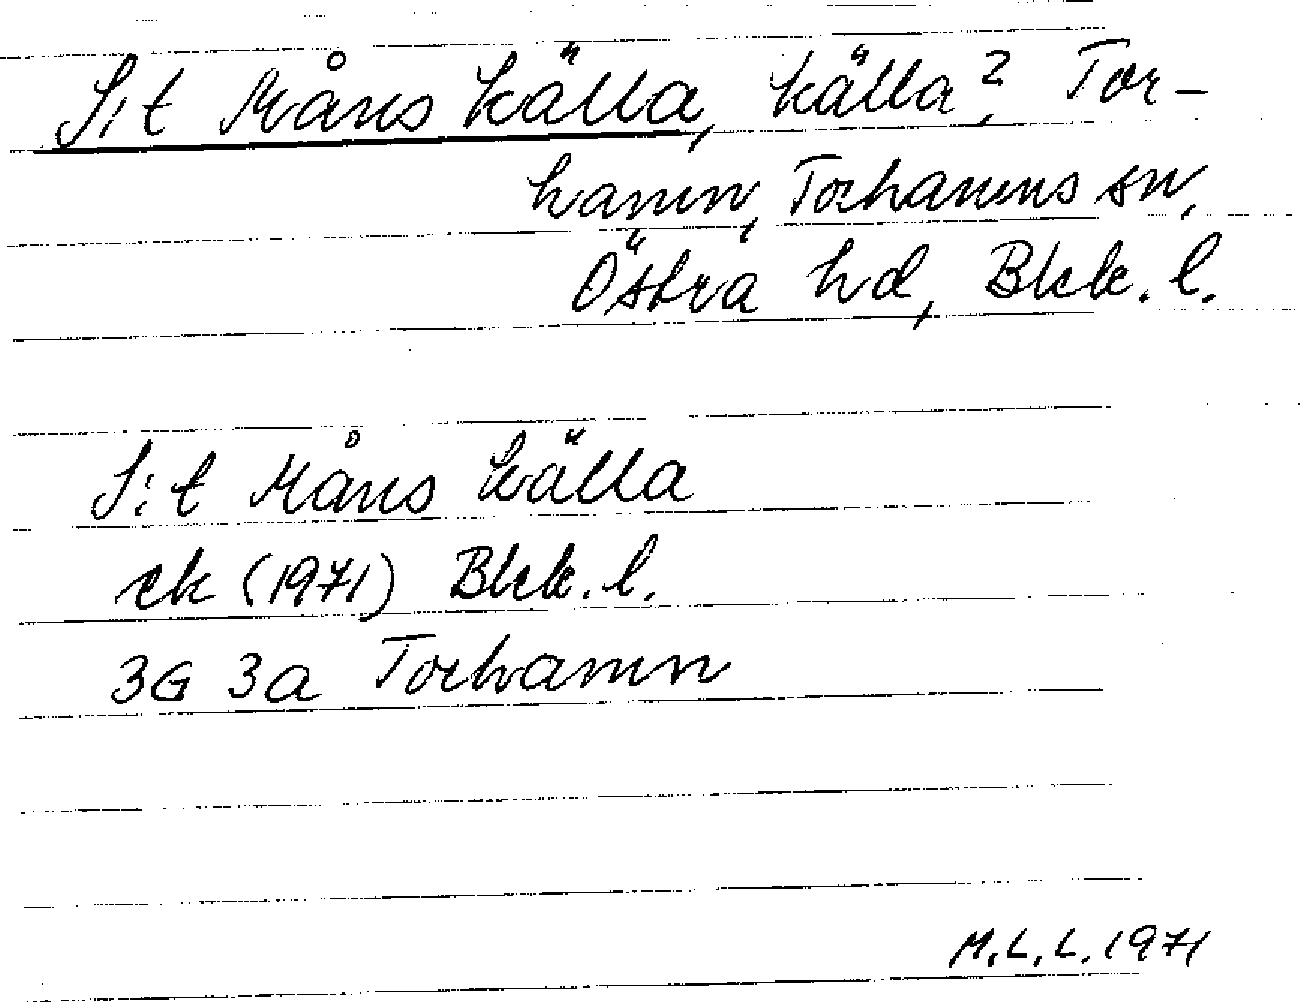 S:t Måns källa, källa?, Tor-
hamn, Torhamns sn,
Östra hd, Blek. l.
S:t Måns källa
ek (1971) Blek. l.
3G 3a Torhamn
M.L.L. 1971